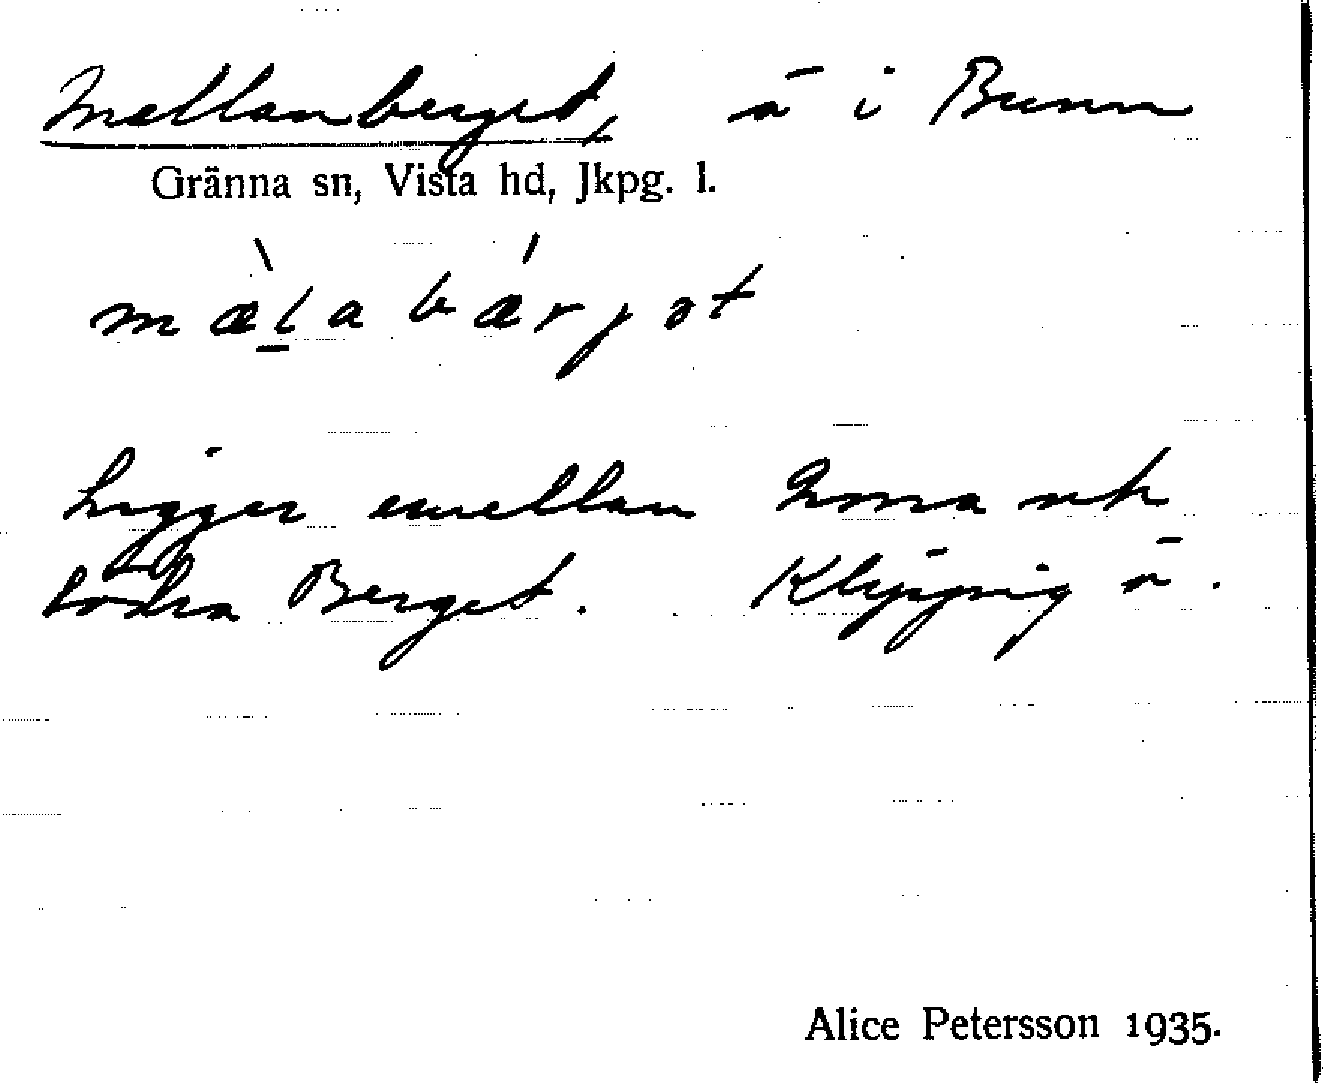 Mellanberget, ö i Bunn
Gränna sn, Vista hd, Jkpg. l.
mælabærjət
Ligger emellan Norra och
Södra Berget. Klippig ö.
Alice Petersson 1935.